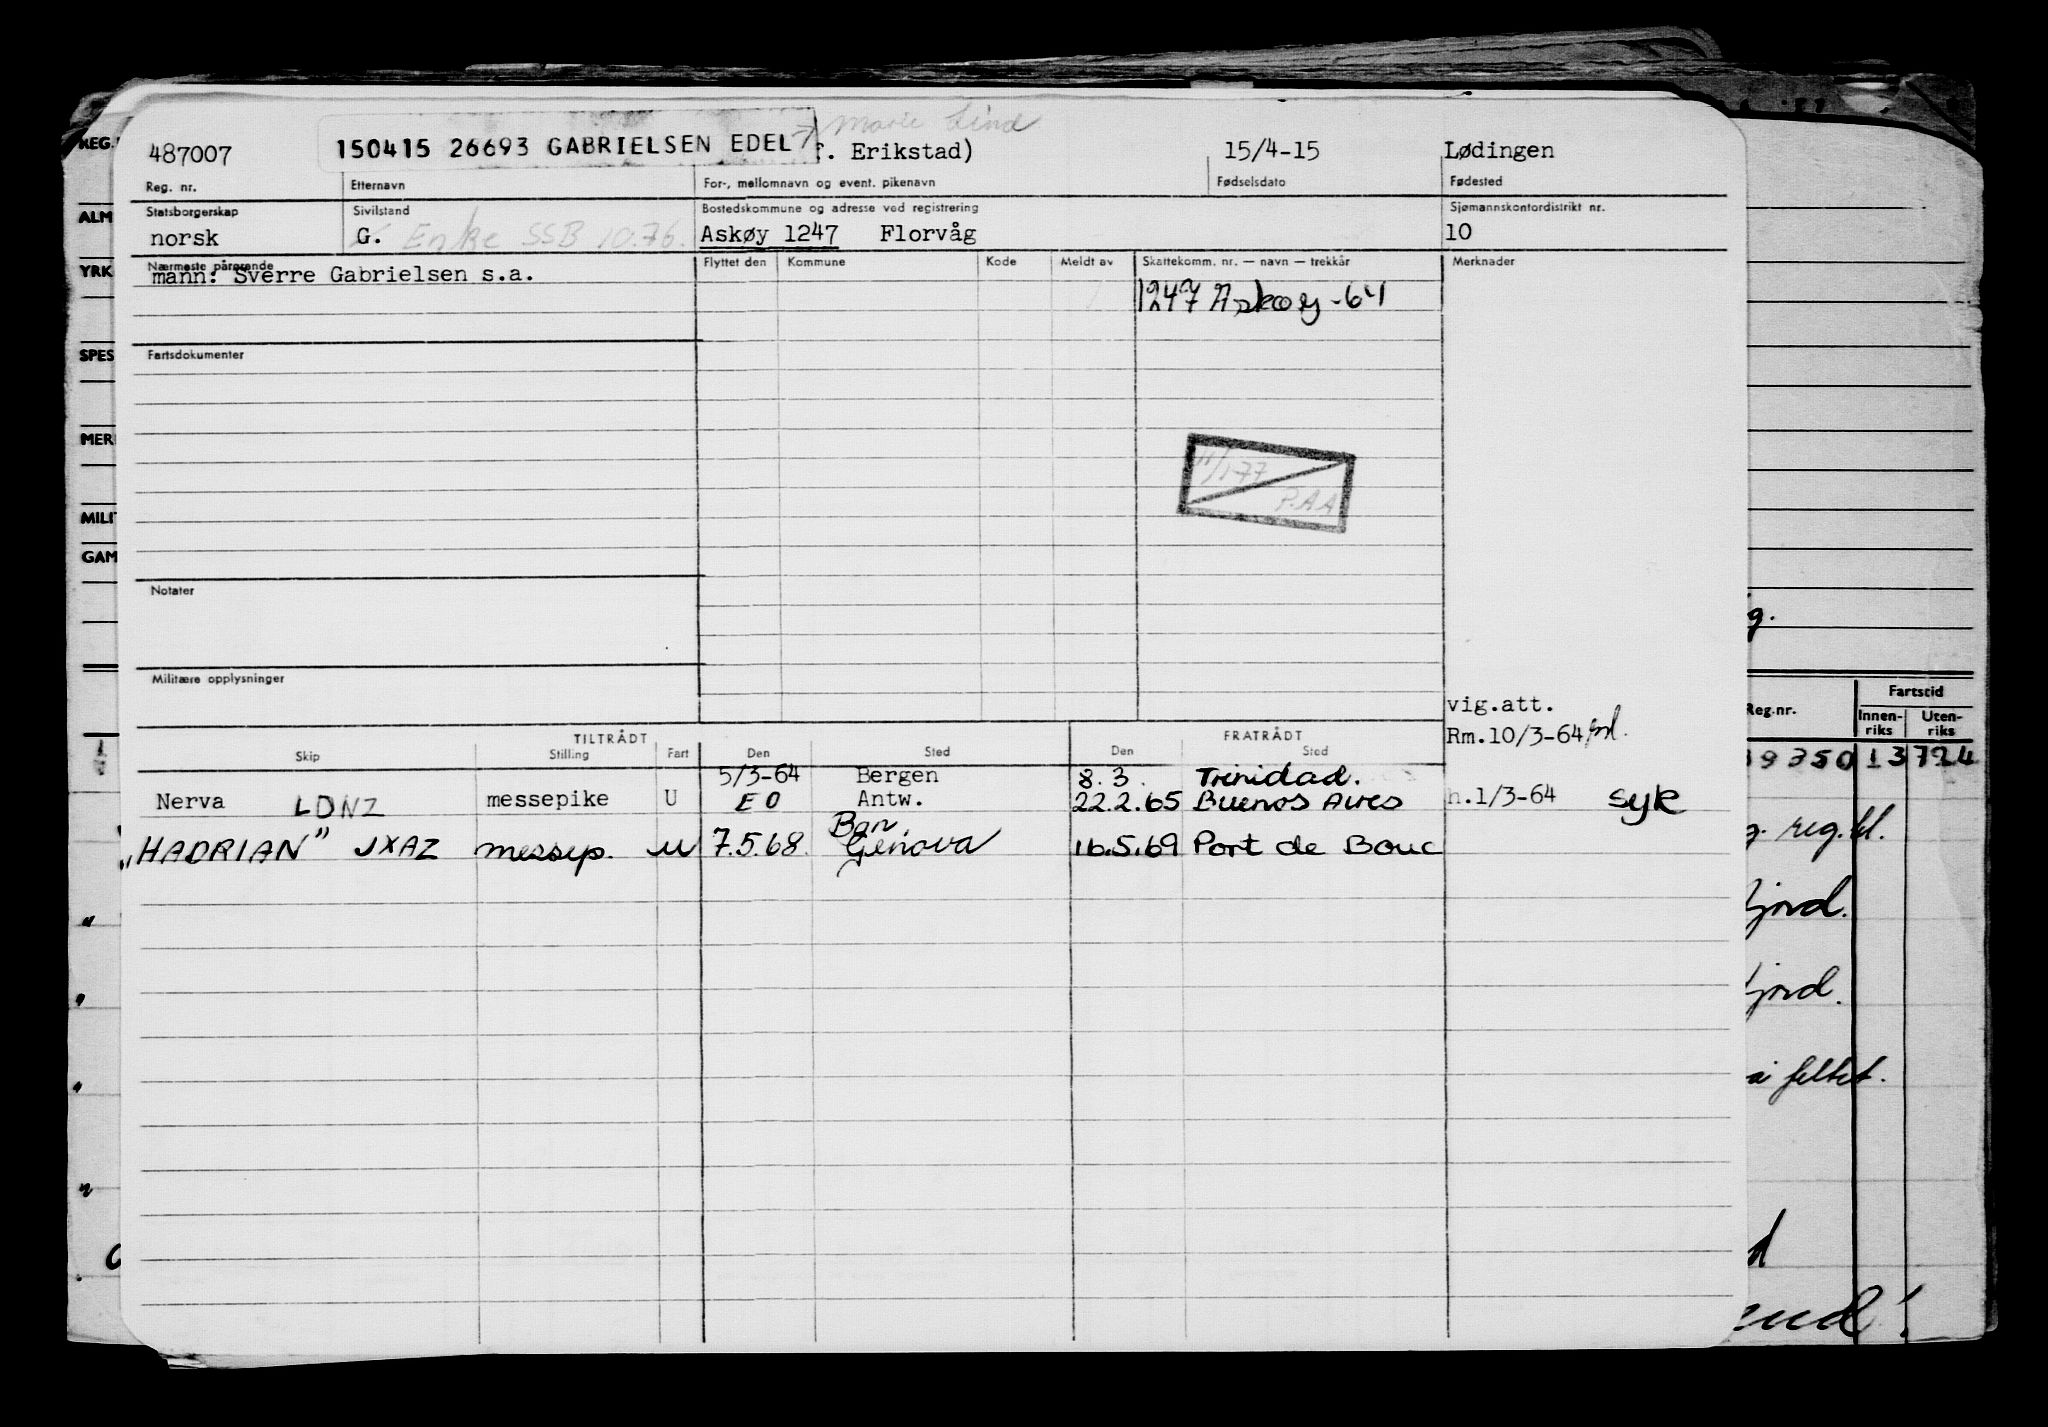 487007 150415 26693 GABRIELSEN EDEL f. Erikstad) Marie Lind 15/4-15 Lødingen
Reg. nr. Etternavn For-, mellomnavn og event. pikenavn Fødselsdato Fødested
Statsborgerskap Sivilstand Bostedskommune og adresse ved registrering Sjømannskontordistrikt nr.
norsk G. Enke SSB 10.76. Askøy 1247 Florvåg 10
Nærmeste pårørende Flyttet den Kommune Kode Meldt av Skattekomm. nr. — navn — trekkår Merknader
mann: Sverre Gabrielsen s.a.
1247 Askøy -64
Fartsdokumenter
11/1-77
P.AA
Notater
Militære opplysninger
vig.att.
Rm.10/3-64
TILTRÅDT FRATRÅDT
Skip Stilling Fart Den Sted Den Sted
5/3-64 Bergen 8.3. Trinidad.
Nerva LDNZ messepike U EO Antw. 22.2.65 Buenos Aires h.1/3-64 syk
"HADRIAN" JXAZ messep. U 7.5.68. Genova 16.5.69 Port de Bouc
REG.
ALM
YRK
SPES
MER
MILI
GAM
g.
Reg.nr. Fartstid
Innen-riks Uten-riks
9350 13 724
g. reg.bl.
fjord.
fjord.
feltet.